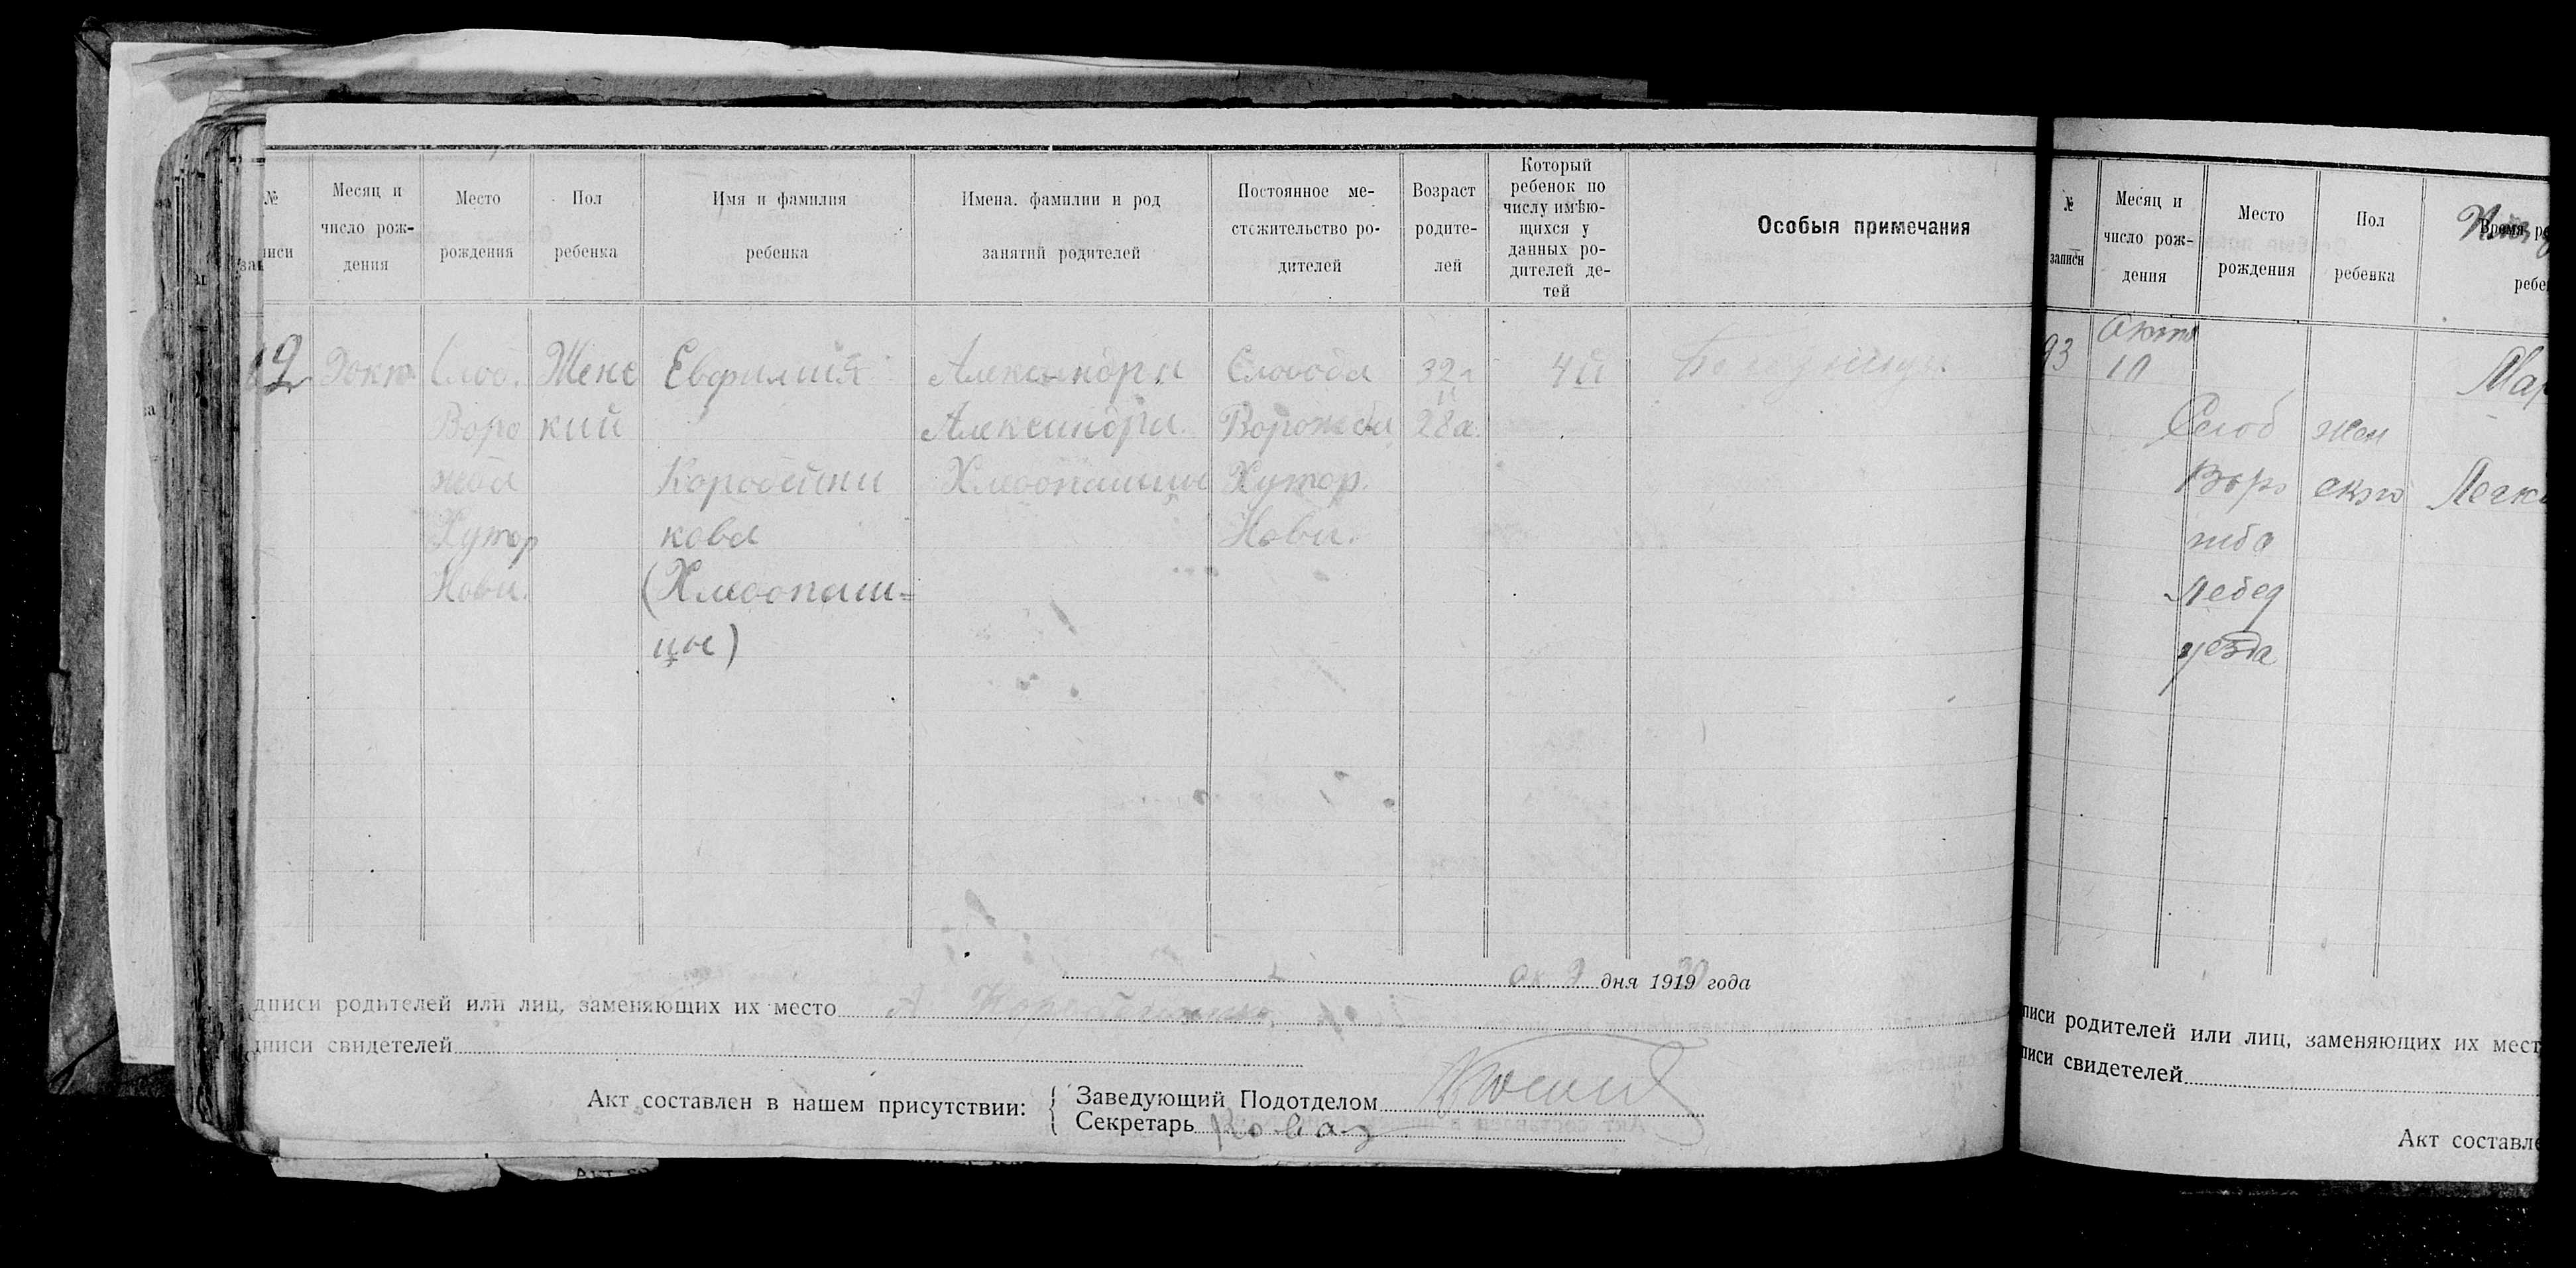 №
записи
Месяц и
число рож-
дения
Место
рождения
Пол
ребенка
Имя и фамилия
ребенка
Имена. фамилии и род
занятий родителей
Постоянное ме-
стожительство ро-
дителей
Возраст
родите-
лей
Который
ребенок по
числу имѣю-
щихся у
данных ро-
дителей де-
тей
Особыя примечания
92
Слоб.
Воро
жба
Хутор
Нови.
Женс
кий
Евфимия
Коробейни
кова
(Хлебопаш=
цы)
Александра
Александра
Хлебопашцы
Слобода
Ворожба
Хутор.
Нови.
32л
28л.
4й
Ок. 9 дня 1919 года
дписи родителей или лиц, заменяющих их место
дписи свидетелей
Акт составлен в нашем присутствии:
Заведующий Подотделом
Секретарь
№
записи
Месяц и
число рож-
дения
Место
рождения
Пол
ребенка
Время ро
ребе
93
Октя
10
Слоб
Воро
жба
Лебед
уезда
жен
ского
Мар
Легк
писи родителей или лиц, заменяющих их мест
писи свидетелей
Акт составле